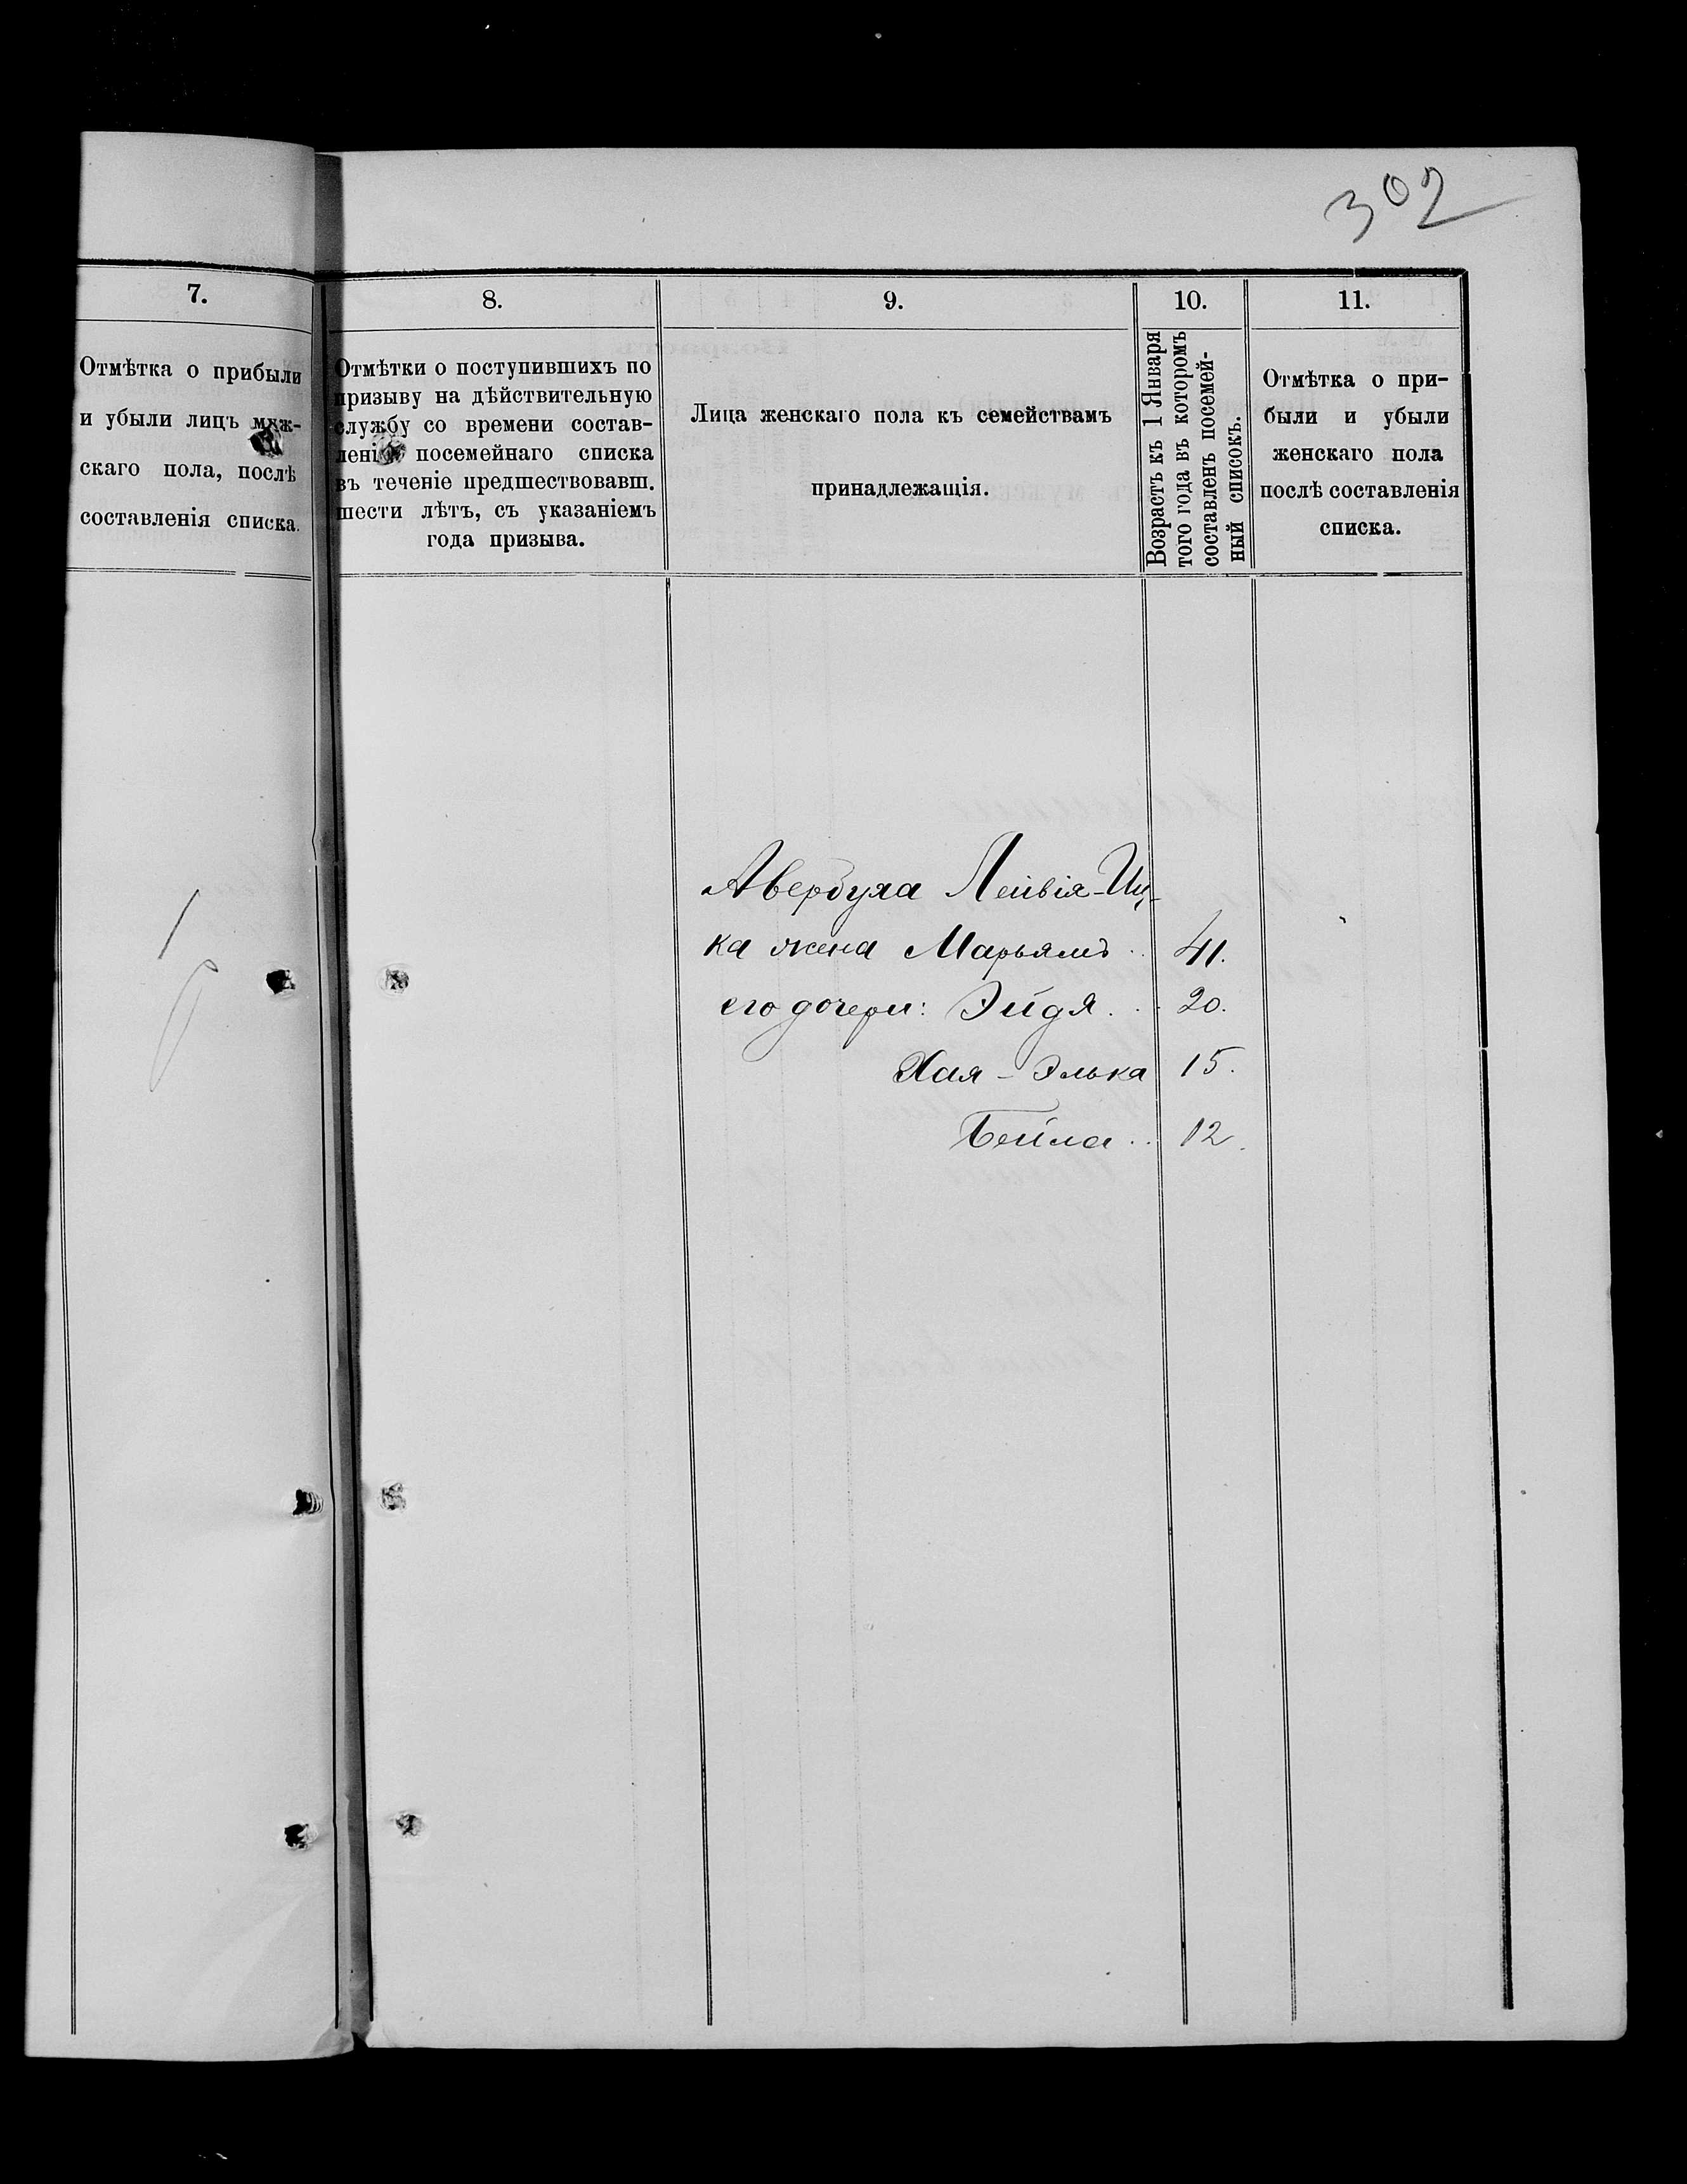 302
7.
Отмѣтка о прибыли
и убыли лицъ муж-
скаго пола, послѣ
составленія списка.
8.
Отмѣтки о поступившихъ по
призыву на дѣйствительную
службу со времени состав-
ленія посемейнаго списка
въ теченіе предшествовавш.
шести лѣтъ, съ указаніемъ
года призыва.
9.
Лица женскаго пола къ семействамъ
принадлежащія.
10.
Возрастъ къ 1 Января
того года въ которомъ
составленъ посемей-
ный списокъ.
11.
Отмѣтка о при-
были и убыли
женскаго пола
послѣ составленія
списка.
Авербуха Лейвія-Иц-
ка жена Марьямъ .. 41.
его дочери: Эйдя ... 20.
Хая-Элька 15.
Бейла .. 12.